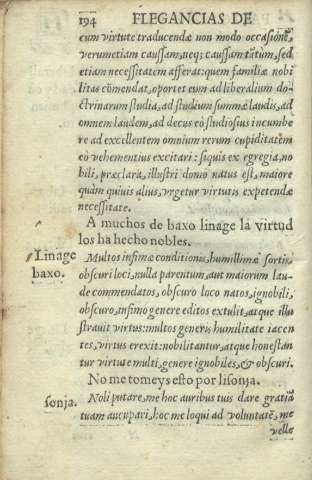 194 ELEGANCIAS DE
cum virtute traducendæ non modo occasionẽ,
verumetiam caussam, neq; caussam tãtùm, sed
etiam necessitatem afferat: quem familiæ nobi
litas cõmendat, oportet eum ad liberalium do-
ctrinarum studia, ad studium summæ laudis, ad
omnem laudem, ad decus eò studiosius incumbe
re ad excellentem omnium rerum cupiditatẽm
eò vehementius excitari: siquis ex egregia, no
bili, præclara, illustri domo natus est, maiore
quàm quiuis alius, vrgetur virtutis expetendæ
necessitate.
A muchos de baxo linage la virtud
los ha hecho nobles.
Linage
baxo.
Multos infimæ conditionis, humillimæ sortis,
obscuri loci, nulla parentum, aut maiorum lau-
de commendatos, obscuro loco natos, ignobili,
obscuro, infimo genere editos extulit, atque illu
strauit virtus: multos generis humilitate iacen
tes, virtus erexit: nobilitantur, atque honestan
tur virtute multi, genere ignobiles, & obscuri.
No me tomeys esto por lisonja.
sonja.
Noli putare, me hoc auribus tuis dare gratiã
tuam aucupari, hoc me loqui ad voluntatẽ, me
velle